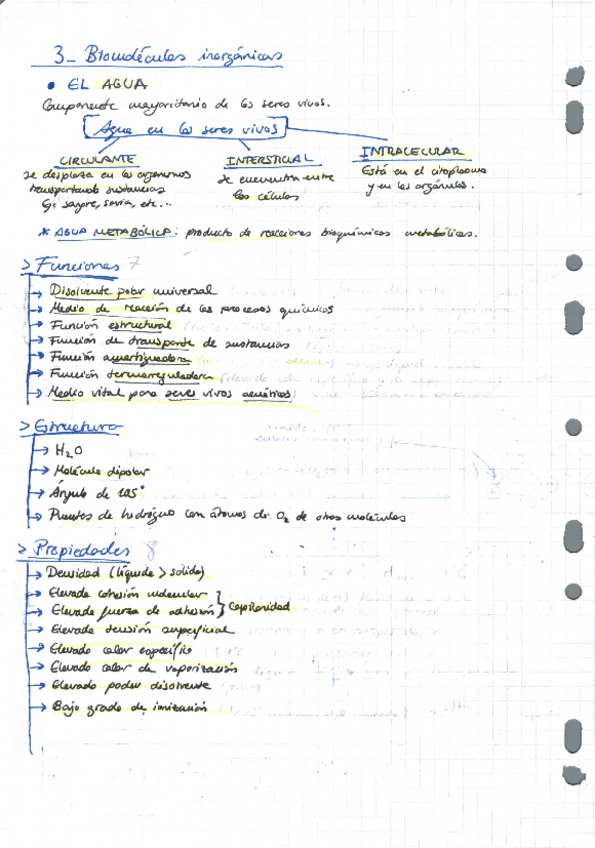 3_ Biomoléculas inorgánicas
• EL AGUA
Componente mayoritario de los seres vivos.
Agua en los seres vivos
CIRCULANTE
se desplaza en los organismos
transportando sustancias
Ej: sangre, savia, etc...
INTERSTICIAL
se encuentra entre
las células
INTRACELULAR
Está en el citoplasma
y en los orgánulos.
* AGUA METABÓLICA: producto de reacciones bioquímicas metabólicas.
> Funciones 7
→ Disolvente polar universal
→ Medio de reacción de los procesos químicos
→ Función estructural
→ Función de transporte de sustancias
→ Función amortiguadora
→ Función termorreguladora
→ Medio vital para seres vivos acuáticos
> Estructura
→ H2O
→ Molécula dipolar
→ Ángulo de 105°
→ Puentes de hidrógeno con átomos de O2 de otras moléculas
> Propiedades 8
→ Densidad (líquida > sólida)
→ Elevada cohesión molecular
→ Elevada fuerza de adhesión } Capilaridad
→ Elevada tensión superficial
→ Elevado calor específico
→ Elevado calor de vaporización
→ Elevado poder disolvente
→ Bajo grado de ionización